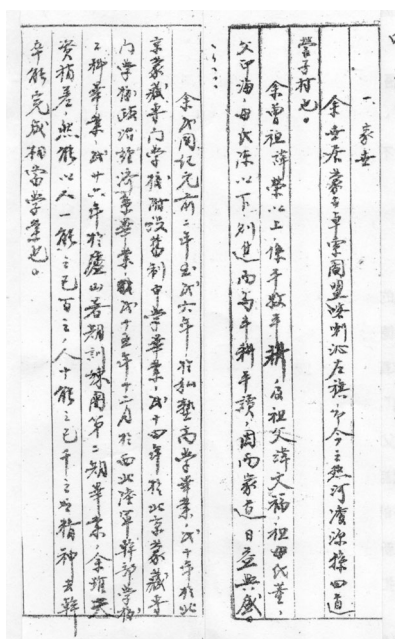 一、家世
余世居蒙古卓索圖盟喀喇沁左旗，即今之熱河凌源縣四道
營子村也。
余曾祖諱榮以上，俱半數年耕，食祖父諱文福，祖母氏董，
父印海，母氏陳以下，則進而為半耕半讀，因而家道日益興盛。
余民國紀元前二年生，民六年於私塾高學畢業，民十年於北
京蒙藏專門學校附設舊制中學畢業，民十四年於北京蒙藏專
門學校政治經濟系畢業，民十五年十二月於西北陸軍幹部學校
工科畢業，民廿六年於廬山暑期訓練團第二期畢業，余雖天
資稍差，然能以人一能之己百之，人十能之己千之之精神去幹
卒能完成相當學業也。